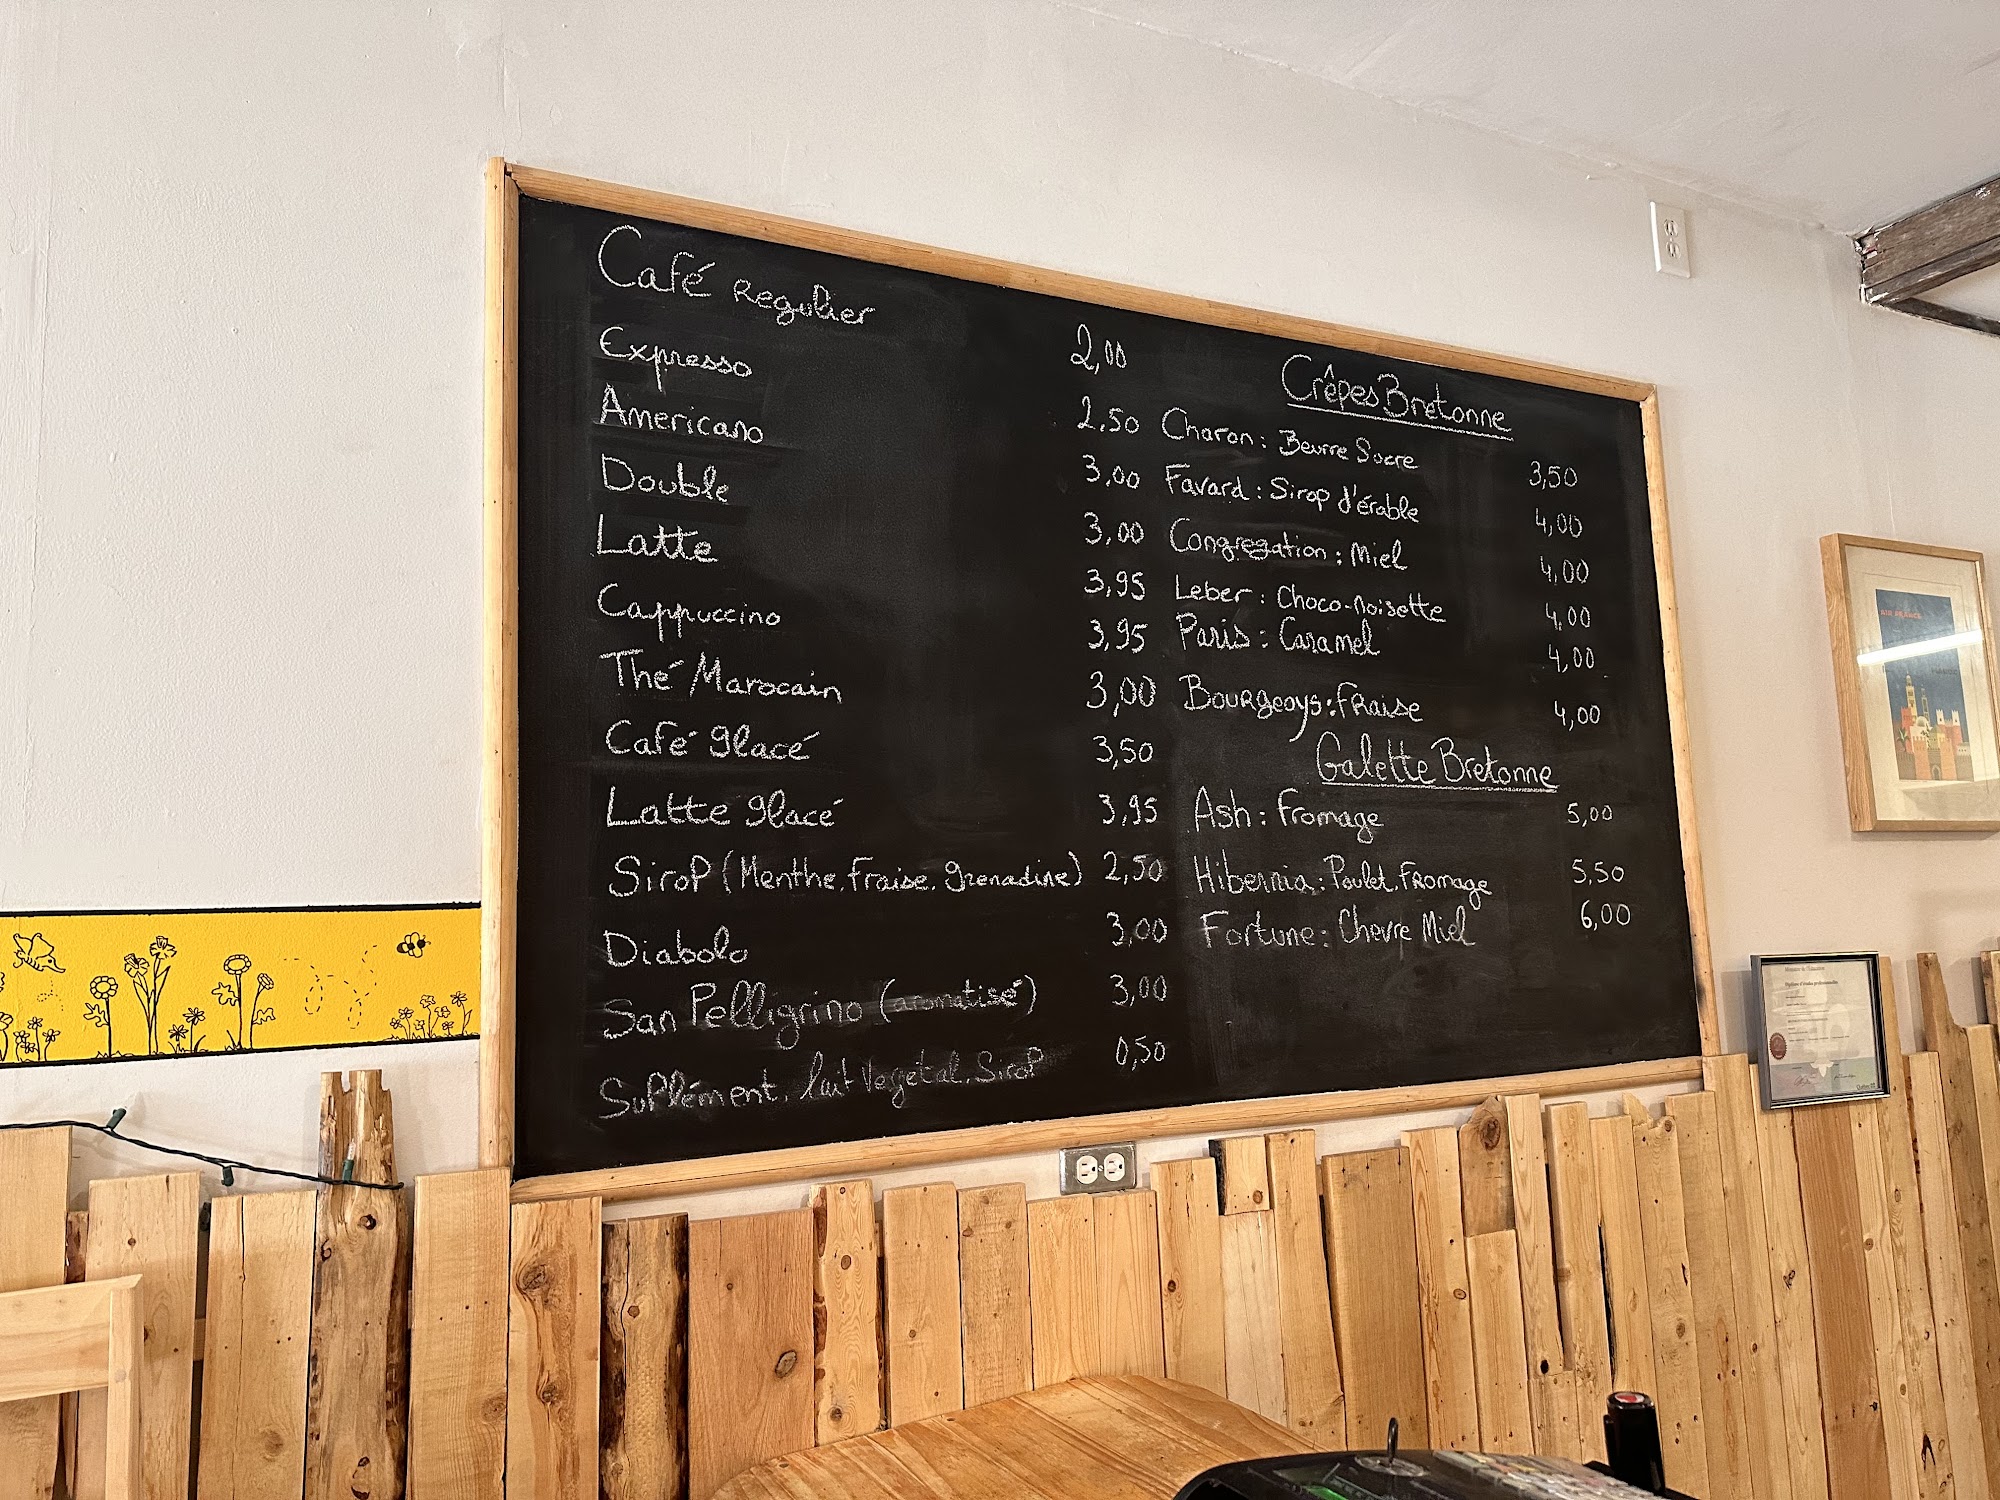 Café Regulier 2,00
Expresso 2,50
Americano 3,00
Double 3,00
Latte 3,95
Cappuccino 3,95
Thé Marocain 3,00
Café glacé 3,50
Latte glacé 3,95
Sirop (Menthe, Fraise, grenadine) 2,50
Diabolo 3,00
San Pelligrino (aromatisé) 3,00
Suplément, lait Vegetal, Sirop 0,50
Crêpes Bretonne
Charon : Beurre Sucre 3,50
Favard : Sirop d'érable 4,00
Congregation : Miel 4,00
Leber : Choco-Noisette 4,00
Paris : Caramel 4,00
Bourgeoys : Fraise 4,00
Galette Bretonne
Ash : Fromage 5,00
Hibernia : Poulet, Fromage 5,50
Fortune : Chevre Miel 6,00
AIR FRANCE
Diplôme d'études professionnelles